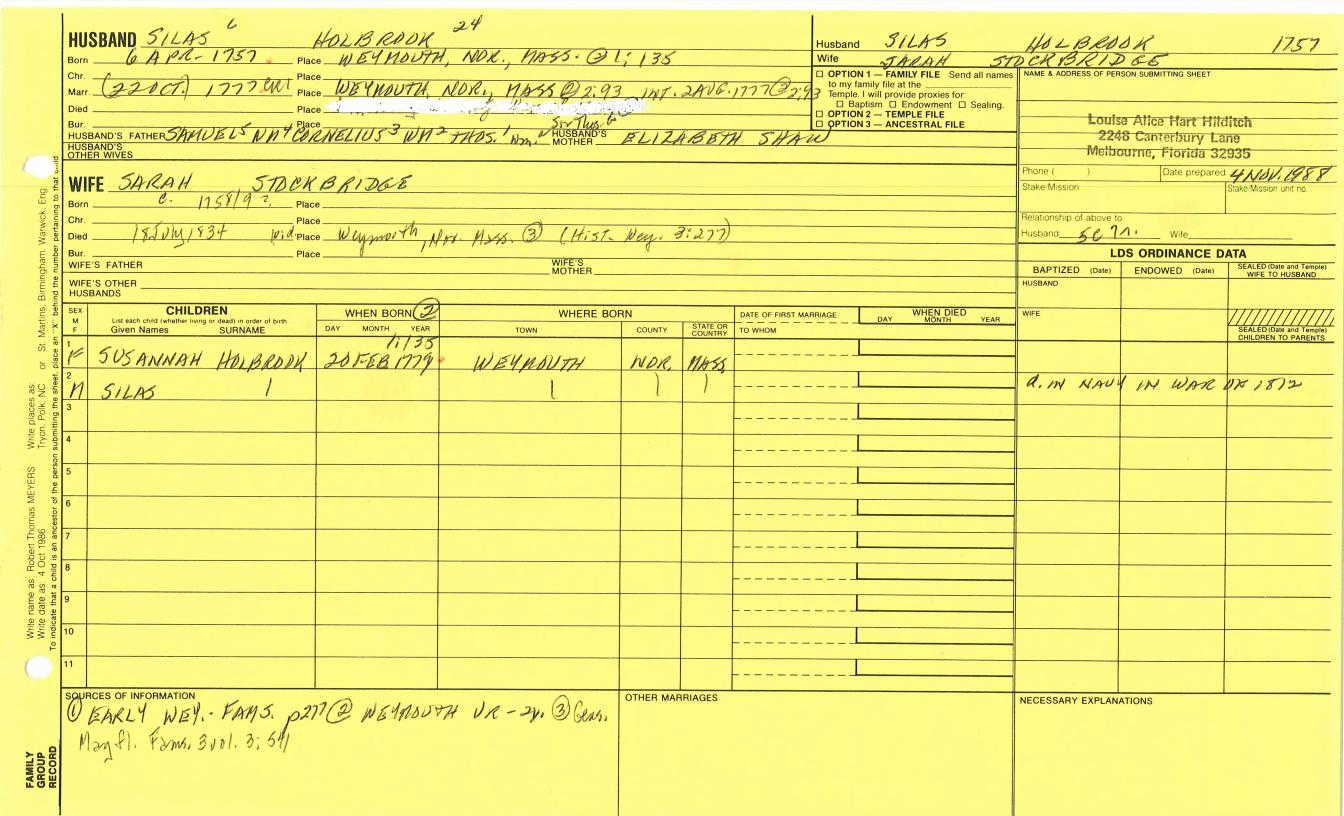 HUSBAND SILAS 6 HOLBROOK 24
Born 6 APR - 1757 Place WEYMOUTH, NOR., MASS. @ 1; 135
Chr. Place
Marr. (22 OCT.) 1777 Place WEYMOUTH, NOR., MASS @ 2:93 INT. 2 AUG. 1777 @ 2:93
Died Place
Bur. Place
HUSBAND'S FATHER SAMUEL5 WM4 CORNELIUS3 WM2 THOS.1 HUSBAND'S MOTHER ELIZABETH SHAW
HUSBAND'S OTHER WIVES
Husband SILAS HOLBROOK 1757
Wife SARAH STOCKBRIDGE
☐ OPTION 1 — FAMILY FILE Send all names
to my family file at the
Temple. I will provide proxies for:
☐ Baptism ☐ Endowment ☐ Sealing.
☐ OPTION 2 — TEMPLE FILE
☐ OPTION 3 — ANCESTRAL FILE
NAME & ADDRESS OF PERSON SUBMITTING SHEET
Louise Alice Hart Hilditch
2248 Canterbury Lane
Melbourne, Florida 32935
Phone ( ) Date prepared 4 NOV. 1988
Stake/Mission Stake/Mission unit no.
Relationship of above to
Husband Wife
WIFE SARAH STOCKBRIDGE
Born c. 1758/9 ?. Place
Chr. Place
Died 18 July 1834 wid. Place Weymouth, Nor. Mass. ③ (Hist. Wey. 3:277)
Bur. Place
WIFE'S FATHER WIFE'S MOTHER
WIFE'S OTHER HUSBANDS
LDS ORDINANCE DATA
BAPTIZED (Date) ENDOWED (Date) SEALED (Date and Temple) WIFE TO HUSBAND
HUSBAND
WIFE
SEALED (Date and Temple) CHILDREN TO PARENTS
SEX M F
CHILDREN
List each child (whether living or dead) in order of birth
Given Names SURNAME
WHEN BORN ②
DAY MONTH YEAR
WHERE BORN
TOWN COUNTY STATE OR COUNTRY
DATE OF FIRST MARRIAGE
TO WHOM
WHEN DIED
DAY MONTH YEAR
1/135
1 F SUSANNAH HOLBROOK 20 FEB 1779 WEYMOUTH NOR. MASS
2 M SILAS d. IN NAVY IN WAR OF 1812
3
4
5
6
7
8
9
10
11
SOURCES OF INFORMATION
① EARLY WEY. - FAMS. p277 ② WEYMOUTH VR - 2v. ③ Gens.
Mayfl. Fams. 3 vol. 3; 541
OTHER MARRIAGES
NECESSARY EXPLANATIONS
Write name as: Robert Thomas MEYERS Write places as: Tryon, Polk, NC or St. Martins, Birmingham, Warwick, Eng
Write date as: 4 Oct 1986
To indicate that a child is an ancestor of the person submitting the sheet, place an "X" behind the number pertaining to that child
FAMILY
GROUP
RECORD